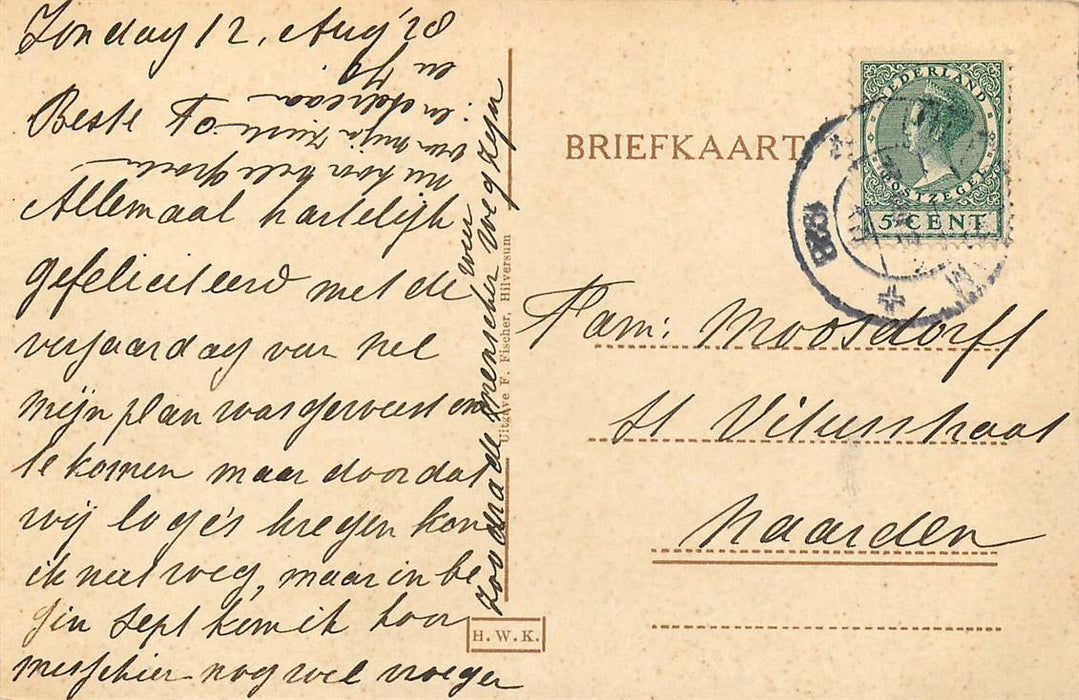 Zondag 12. Aug '28
Beste To
Allemaal hartelijk
gefeliciteerd met de
verjaardag van Nel
mijn plan was geweest om
te komen maar doordat
wij logés kregen kon
ik niet weg, maar in be
gin Sept kom ik hoor
misschien nog wel vroeger
zoodra de menschen weer weg zijn
nu hoor vele groeten
van mijn
en Jo
Uitgave F. Fischer, Hilversum
H. W. K.
BRIEFKAART
NEDERLAND
POSTZEGEL
5 CENT
1928
Fam: Moosdorff
St Vitusstraat
Naarden